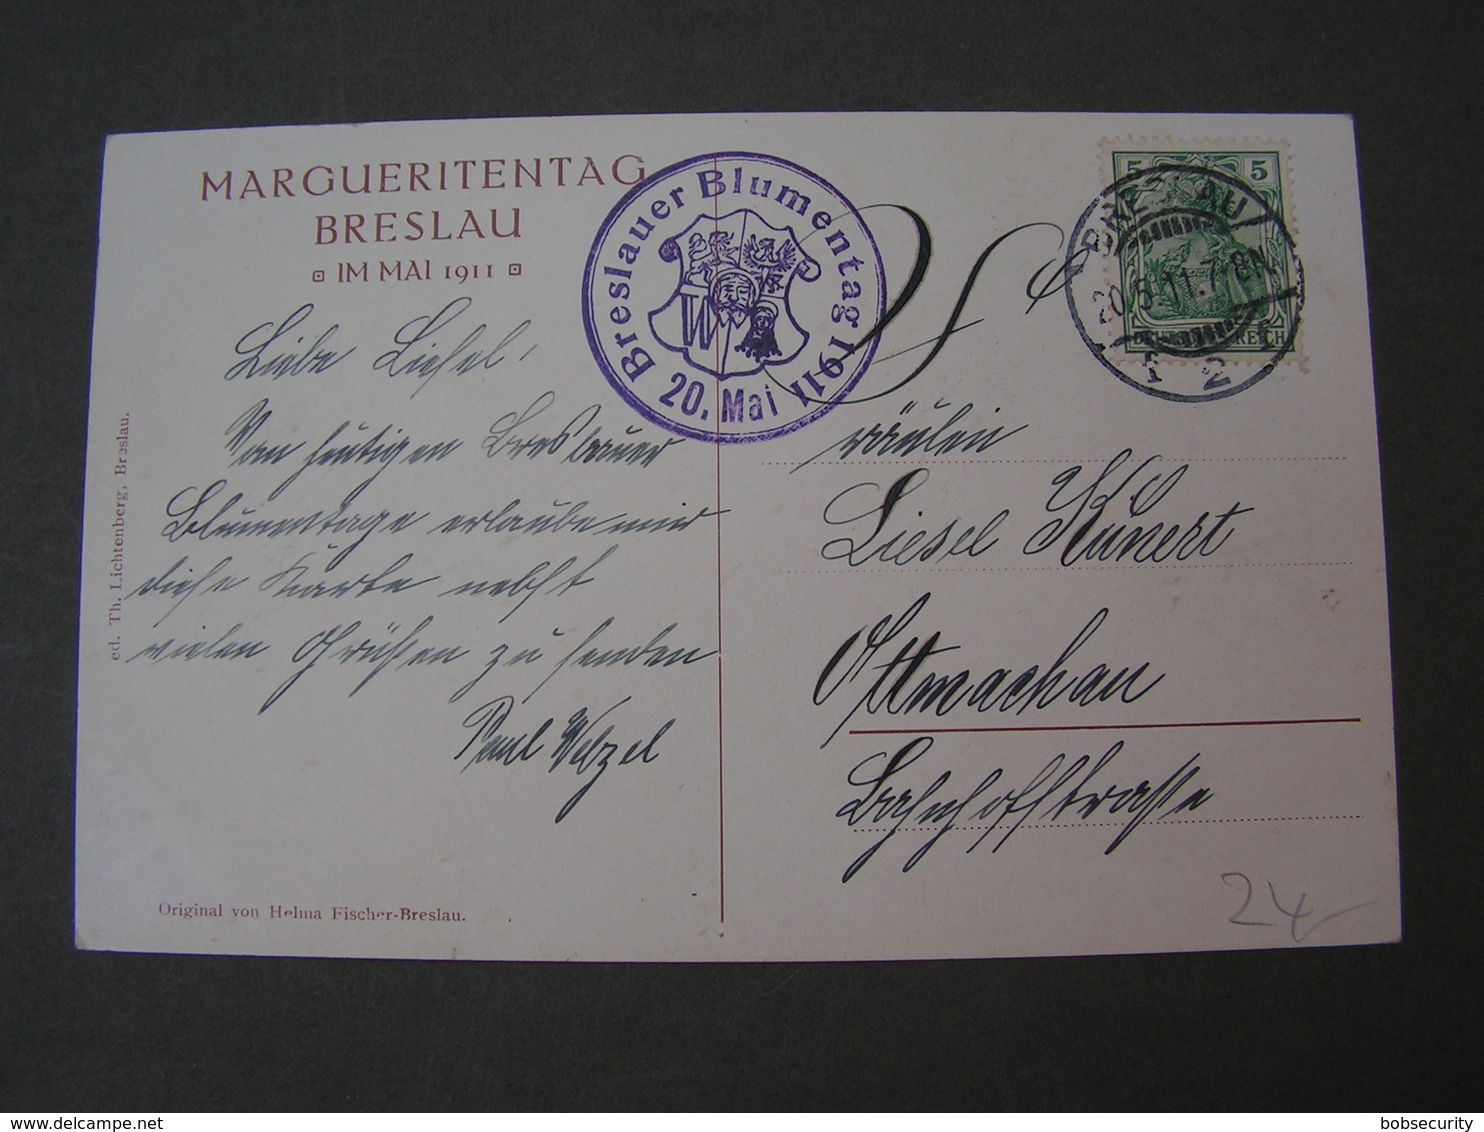 MARGUERITENTAG
BRESLAU
IM MAI 1911
Breslauer Blumentag 1911
20. Mai
W
5 5
REICH
BRESLAU
20.5.11.7-8N.
1 2
Liebe Liesel,
Vom heutigen Breslauer
Blumentage erlaube mir
diese Karte nebst
vielen Grüßen zu senden
Paul Welzel
Fräulein
Liesel Kunert
Ottmachau
Bahnhofstrasse
24
ed. Th. Lichtenberg, Breslau.
Original von Helma Fischer-Breslau.
bobsecurity